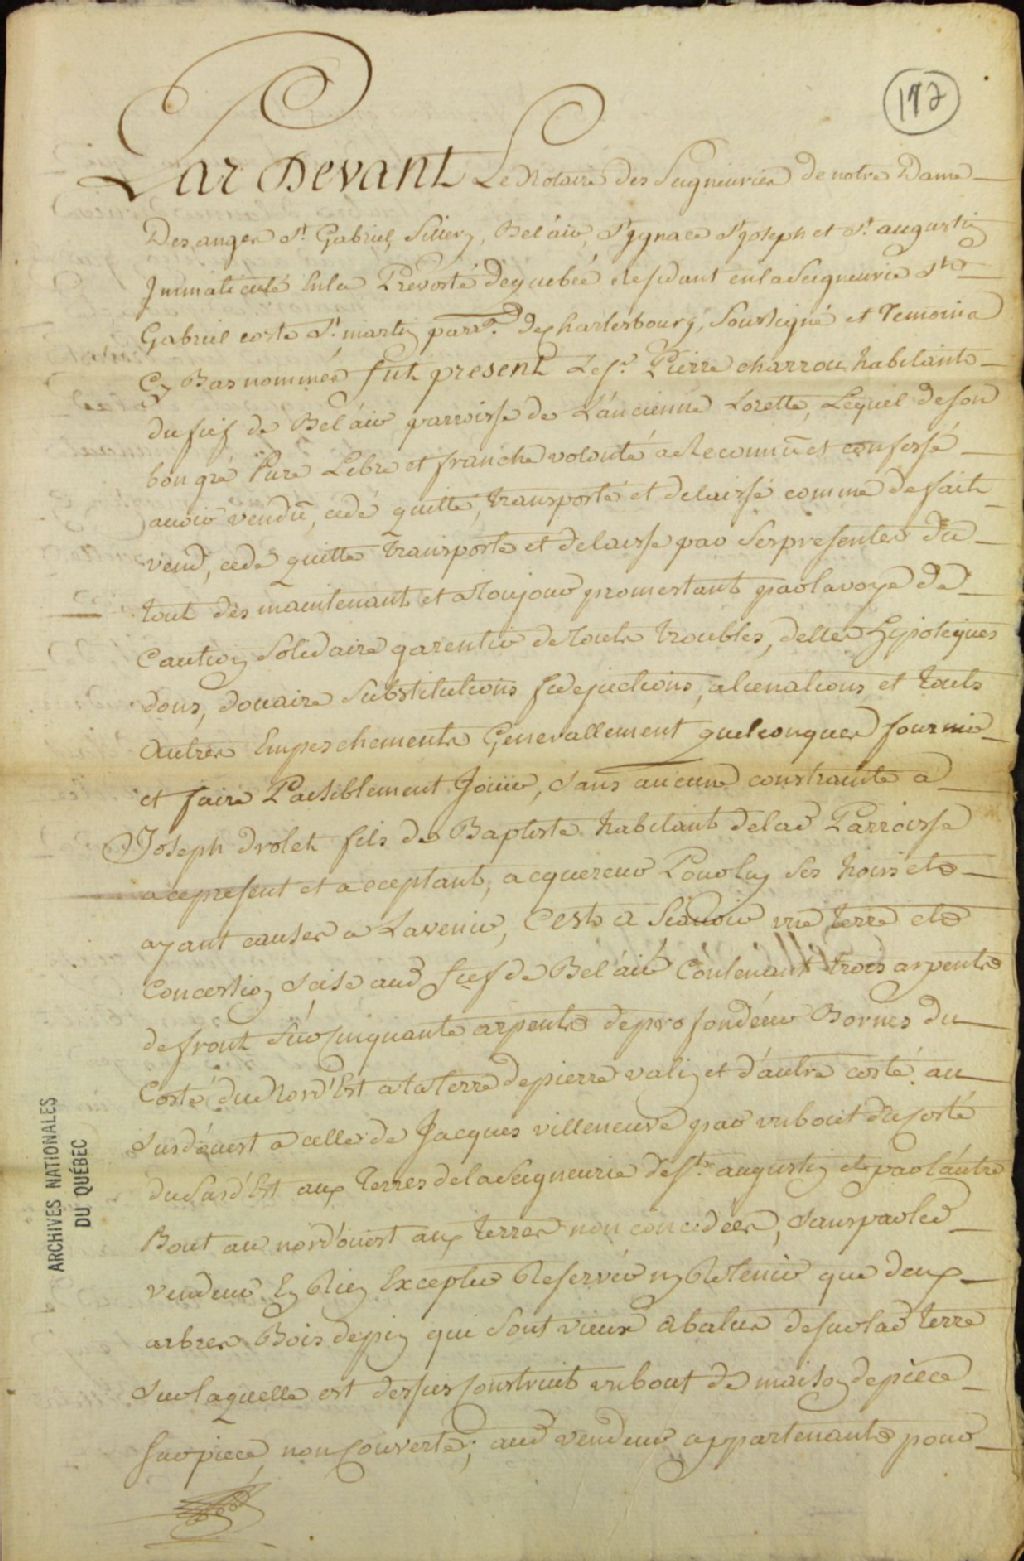 172
Par Devant Le Notaire Des Seigneuries de notre Dame
Des anges St. Gabriel Sillery, Bel'air, St Ignace St joseph et St. augustin
Immatriculé En la Prevosté de quebec residant en la Seigneurie St
Gabriel coste St. martin parr.e De Charlesbourg, Soussigné et Temoins
Cy Bas nommés fut present Le Sr. Pierre charrou habitant
du fief de Bel'air parroisse de L'ancienne Lorette, Lequel de son
bon gré Pure Libre et franche volonté a Reconnu et confessé
avoir vendu, cedé quitté, transporté et delaissé comme de fait
vend, cede quitte transporte et delaisse par Ses presentes du
tout dès maintenant et a toujour promettant par la voye de
Caution Solidaire garentir de touts troubles, dettes hypoteques
dons, douaire Substitutions fidejuctions, alienations et touts
Autres Empeschements Generallement quelconques fournir
et faire Paisiblement Jouir, sans aucune constrainte a
Joseph Drolet fils de Baptiste habitant de lad Parroisse
a ce present et acceptant, acquereur Pour luy Ses hoirs et
ayant causes a L'avenir, C'est a Scavoir une terre et
Concession Scise aud fief de Bel'air Contenant trois arpents
de front Sur Cinquante arpents de profondeur Bornés du
Costé du Nord'Est a la terre de pierre valin et d'autre costé au
Surd'ouest a celle de Jacques villeneuve par un bout du Costé
du Sud'Est aux terres de la Seigneurie de St. augustin et par l'autre
Bout au nord'ouest aux terres non concedées, sans par led
vendeur En Rien Excepter Reserver ny Retenir que deux
arbres Bois de pin qui Sont vieux abatue de sur lad terre
Sur laquelle est dessus Construit un bout de maison de piece
Sur piece non Couverte; aud vendeur appartenante pour
ARCHIVES NATIONALES
DU QUÉBEC